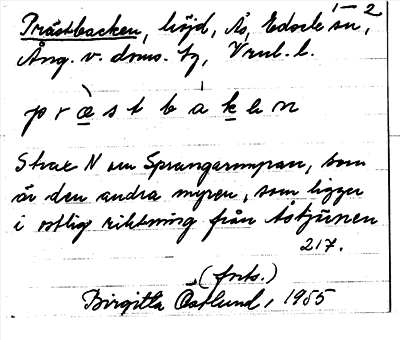 1-2
Prästbacken, höjd, Ås, Edsele sn,
Ång. v. doms. tg, Vnl. l.
p r æ s t b a k e n
Strax N om Sprangarmyran, som
är den andra myren, som ligger
i ostlig riktning från Åstjärnen
217.
(forts.)
Birgitta Östlund, 1955